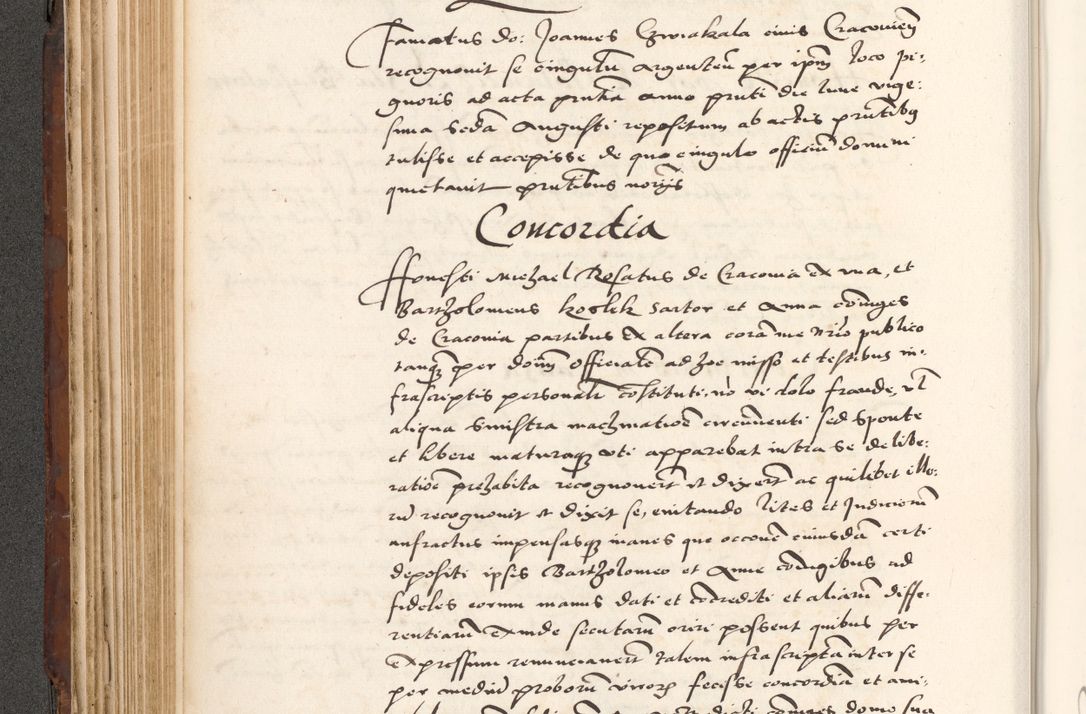 Famatus do: Joannes Czwiakala civis Cracovieñ
recognovit se cingulũ argenteũ per ipm̃ loco pi:
gnoris ad acta pñtia anno pñti die lune vige:
sima scda Augusti repositum ab actis pñtibq
tulisse et accepisse de quo cingulo officiũ domini
quietavit pñtibus
Concordia
Honesti Michael Rosatus de Cracovia ex vna, et
Bartholomeus koslek sartor et Anna cõiuges
de Cracovia partibus ex altera corã me nrio publico
tanq̃ per dom̃ officialẽ ad hoc misso et testibus in:
frascriptis personalr̃ cõstituti, nõ vi dolo fraude, vl̃
aliqua sinistra machinatioẽ circũventi sed sponte
et libere maturaq̃ vti apparebat intra se delibe:
ratioẽ prehabita recognoverũt et dixerũt ac quilibet illo:
rũ recognovit et dixit se, evitando lites et Judiciorũ
anfractus impensasq̃ inanes que occoẽ cuiusdã certi
depositi ipsis Bartholomeo et Anne cõiugibus ad
fideles eorum manus dati et cõcrediti et aliarũ diffe:
rentiarũ exinde secutarũ oriri possent quibus per
expressum renunciaverũt talem infrascriptã inter se
per mediũ proborũ virorz fecisse concordiã et ami:
dicti cõiuges domo sua